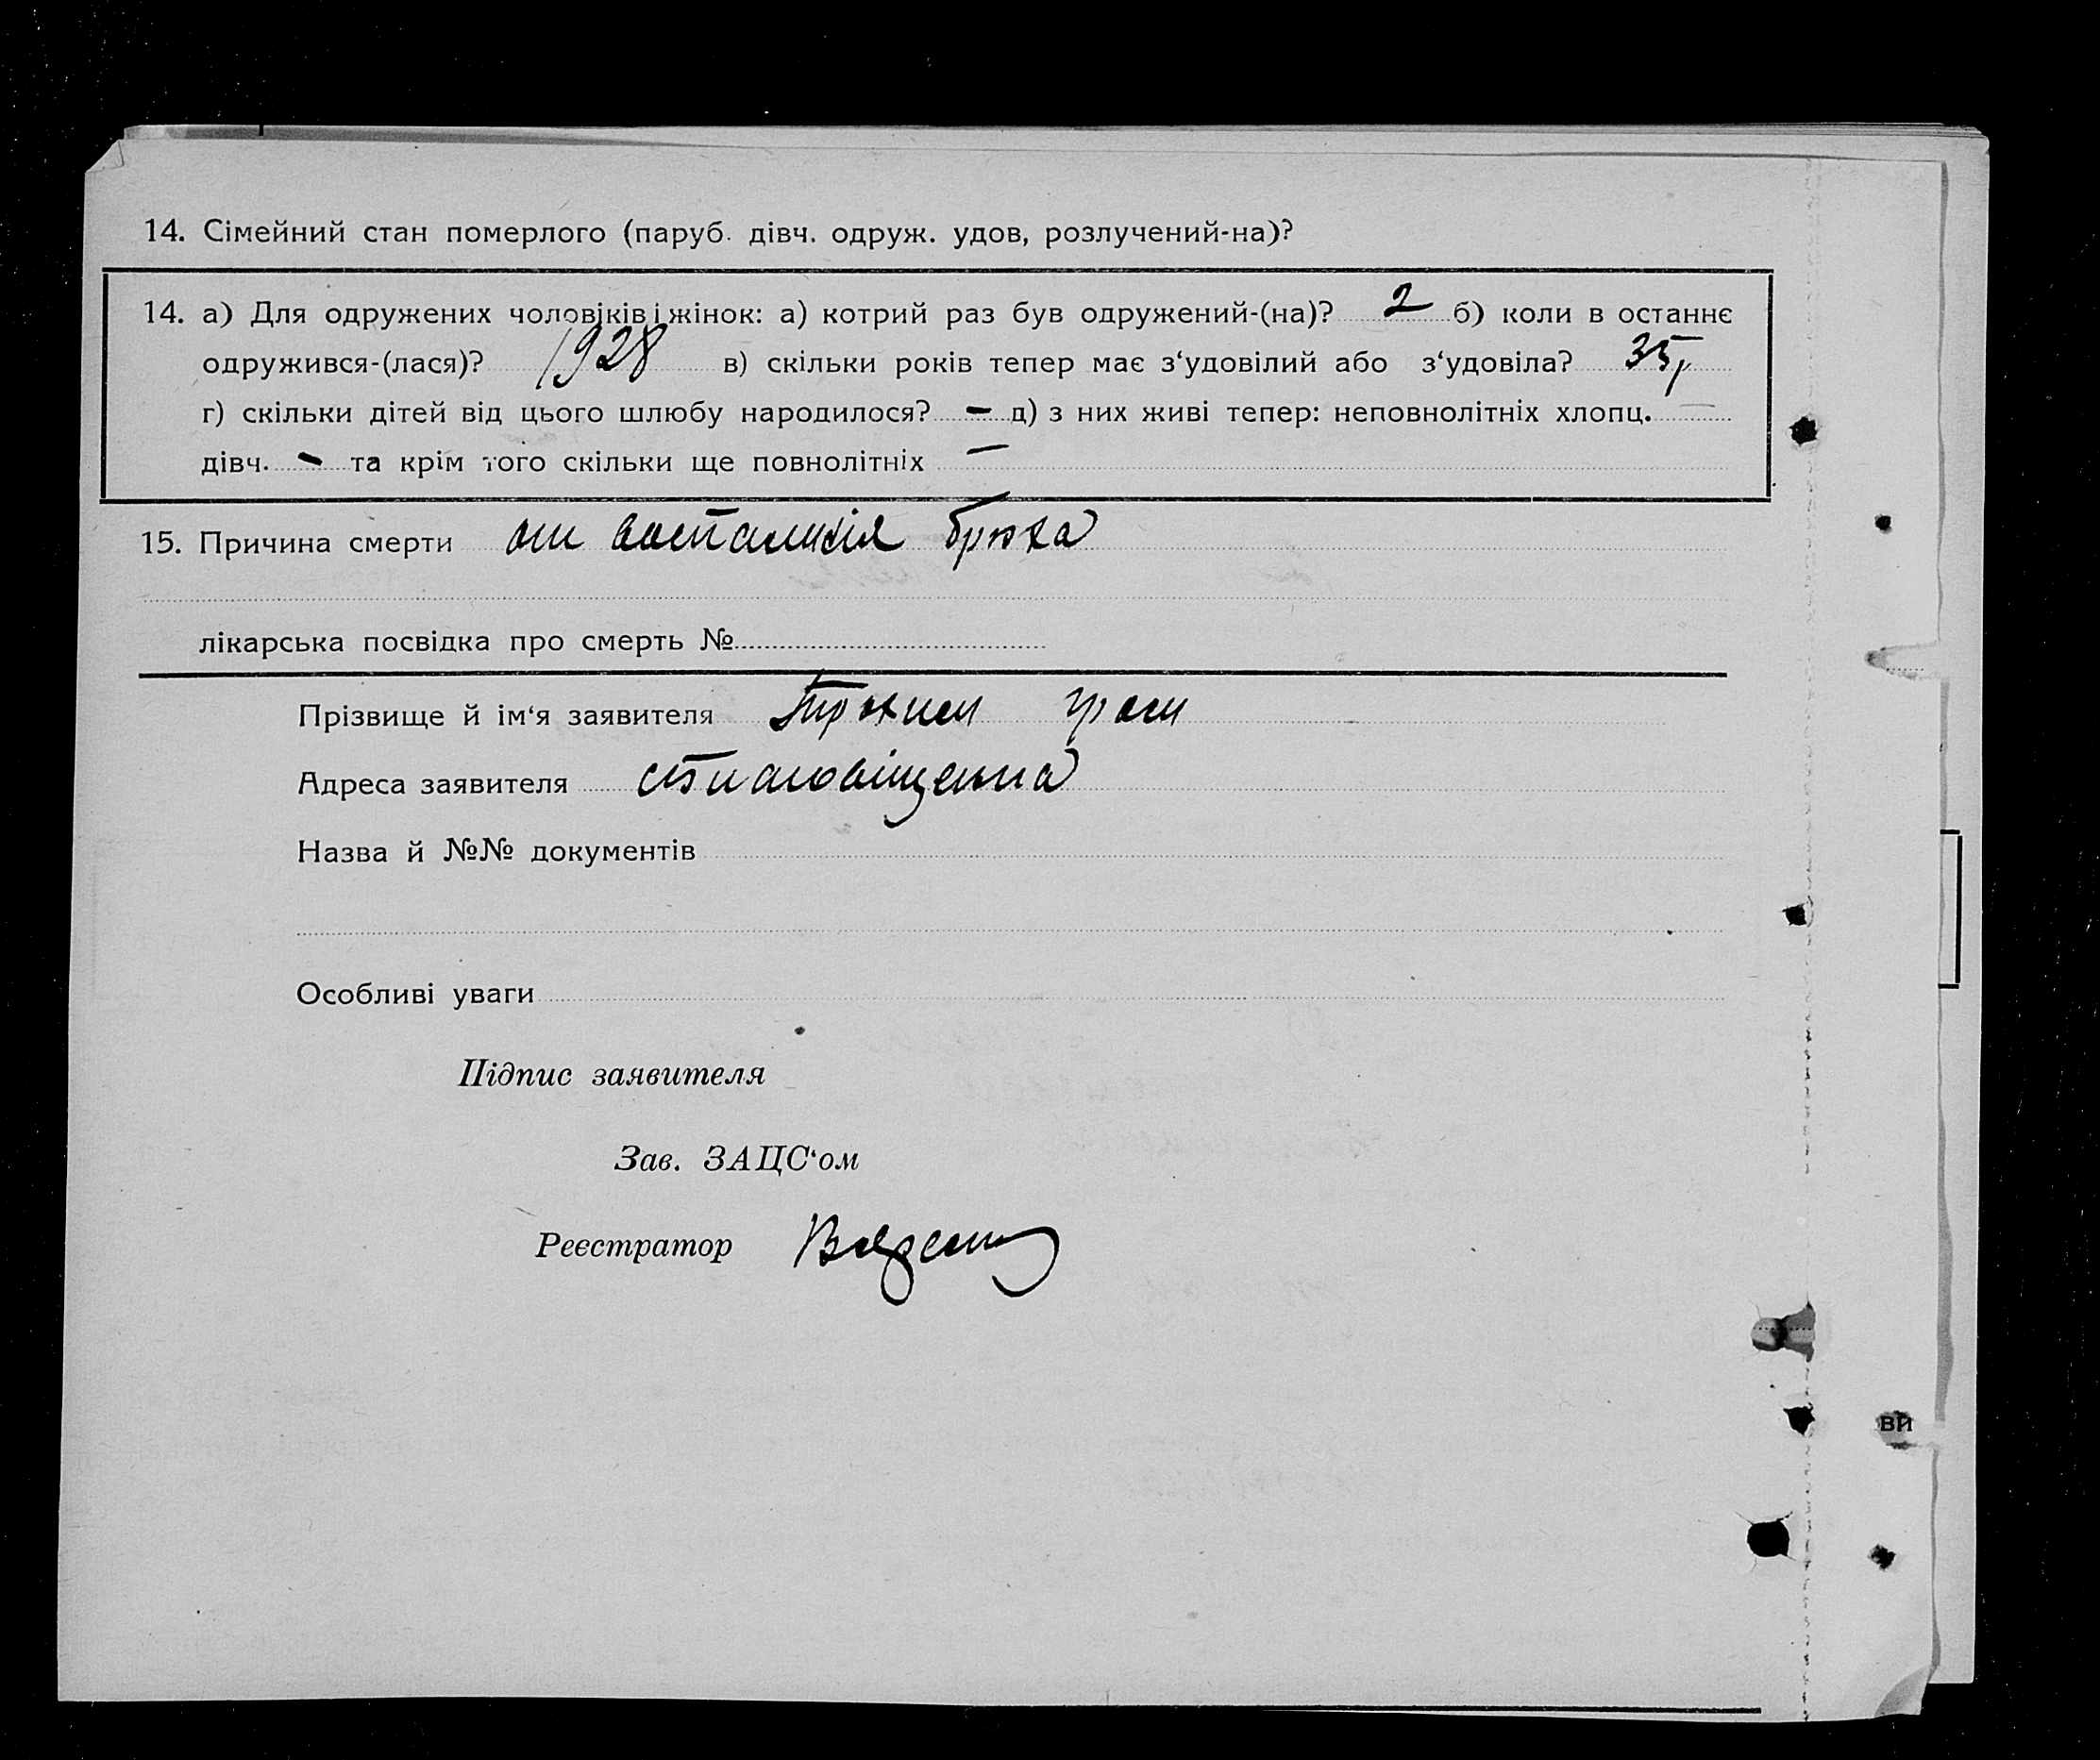 14. Сімейний стан померлого (паруб. дівч. одруж. удов, розлучений-на)?
14. а) Для одружених чоловіків і жінок: а) котрий раз був одружений-(на)? 2 б) коли в останнє
одружився-(лася)? 1928 в) скільки років тепер має з‘удовілий або з‘удовіла? 35
г) скільки дітей від цього шлюбу народилося? — д) з них живі тепер: неповнолітніх хлопц. —
дівч. — та крім того скільки ще повнолітніх —
15. Причина смерти от воспаления брюха
лікарська посвідка про смерть №
Прізвище й ім‘я заявителя
Адреса заявителя
Назва й №№ документів
Особливі уваги
Підпис заявителя
Зав. ЗАЦС‘ом
Реєстратор
ви